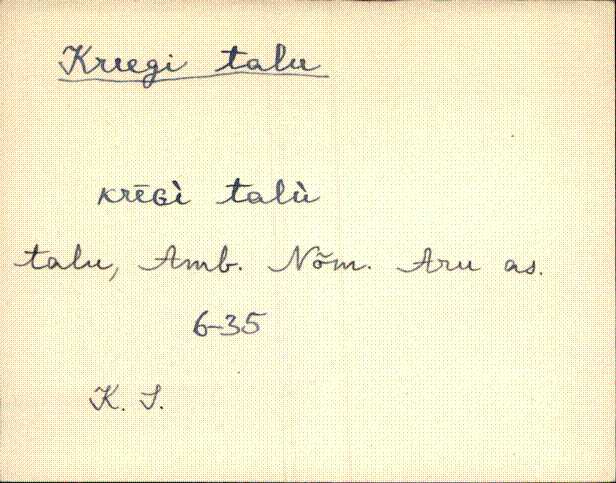 Kruegi talu
krēɢì talù
talu, Amb. Nõm. Aru as.
6-35
K. S.